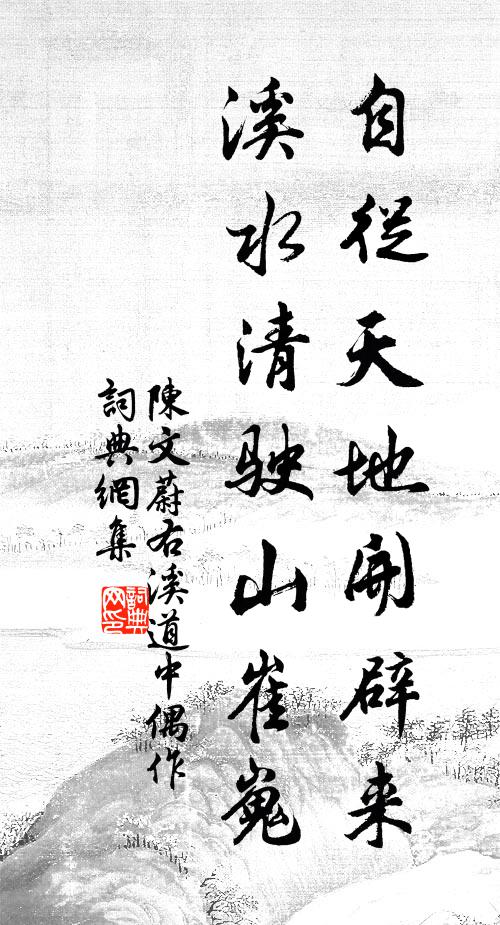 自從天地開辟来
溪水清駛山崔嵬
陳文蔚右溪道中偶作
詞典網集
詞典网印